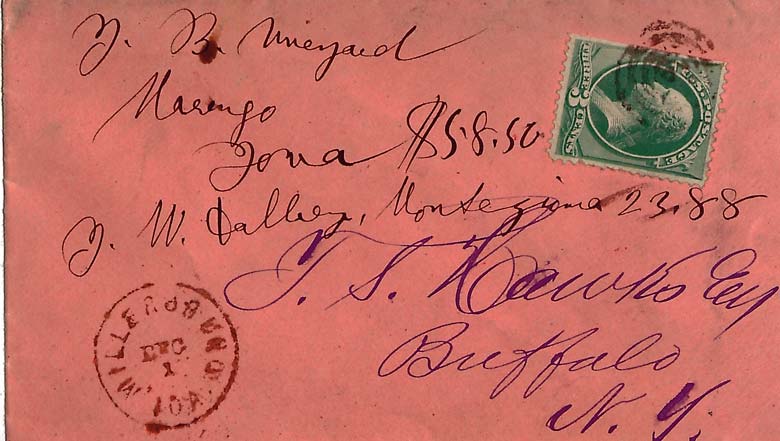 J. B. Vineyard
Marengo
Iowa $58.50
J. W. Dalbey, Montezuma 23.88
T. S. Hawks Esq
Buffalo
N. Y.
MILLERSBURG IOWA
DEC
1
U.S. POSTAGE
THREE CENTS
3